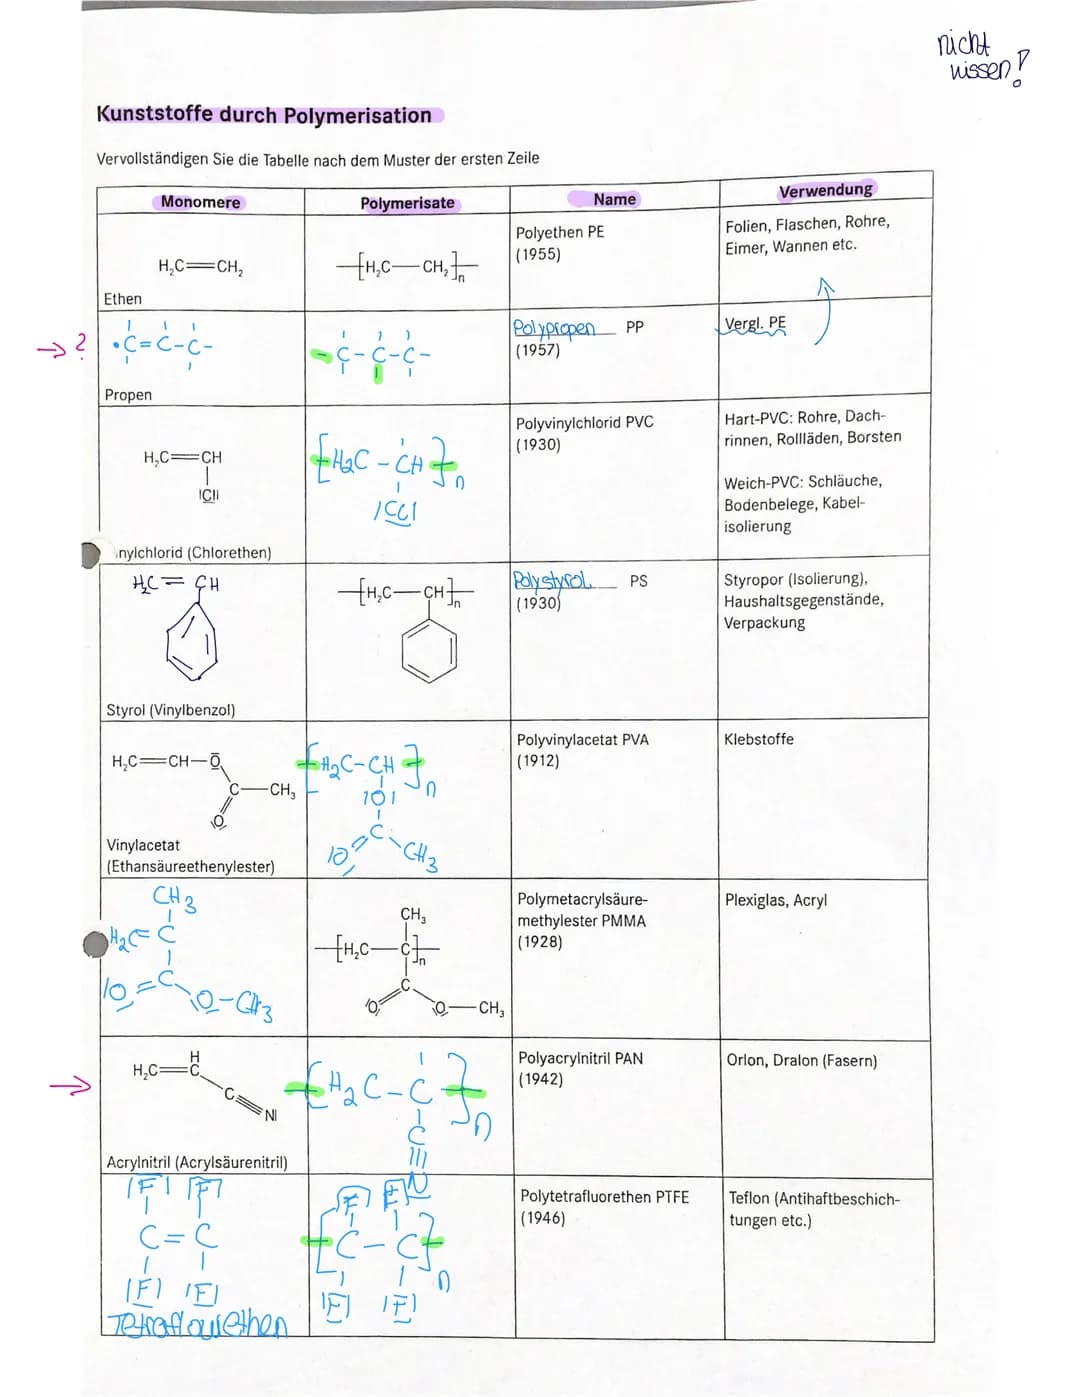 nicht
wissen!
Kunststoffe durch Polymerisation
Vervollständigen Sie die Tabelle nach dem Muster der ersten Zeile
Monomere Polymerisate Name Verwendung
H₂C=CH₂
Ethen
[H₂C—CH₂]n
Polyethen PE
(1955)
Folien, Flaschen, Rohre,
Eimer, Wannen etc.
→ ? C=C-C-
Propen
-C-C-C-
Polypropen PP
(1957)
Vergl. PE
H₂C=CH
|Cl|
nylchlorid (Chlorethen)
[H2C-CH]n
|Cl|
Polyvinylchlorid PVC
(1930)
Hart-PVC: Rohre, Dach-
rinnen, Rollläden, Borsten
Weich-PVC: Schläuche,
Bodenbelege, Kabel-
isolierung
H₂C=CH
Styrol (Vinylbenzol)
[H₂C—CH]n
Polystyrol PS
(1930)
Styropor (Isolierung),
Haushaltsgegenstände,
Verpackung
H₂C=CH—O
C—CH₃
O
Vinylacetat
(Ethansäureethenylester)
[H2C-CH]n
|O|
C
|O CH3
Polyvinylacetat PVA
(1912)
Klebstoffe
CH3
H2C=C
|O=C
O-CH3
CH₃
[H₂C—C]n
C
O O—CH₃
Polymetacrylsäure-
methylester PMMA
(1928)
Plexiglas, Acryl
→
H
H₂C=C
C≡N|
Acrylnitril (Acrylsäurenitril)
[H2C-C]n
C
|||
N
Polyacrylnitril PAN
(1942)
Orlon, Dralon (Fasern)
|F| |F|
C=C
|F| |F|
Tetraflourethen
|F| |F|
[C-C]n
|F| |F|
Polytetrafluorethen PTFE
(1946)
Teflon (Antihaftbeschich-
tungen etc.)